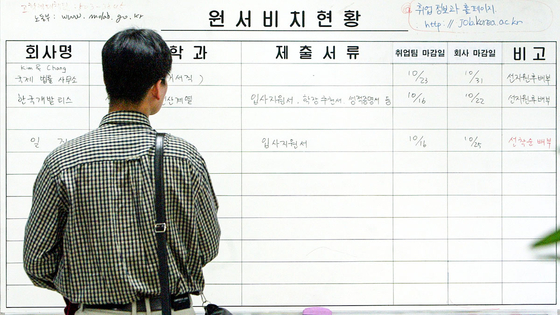 노동부: www. molab. go. kr
취업 정보과 홈페이지
http://jobkorea.ac.kr
원서비치현황
회사명 학과 제출서류 취업팀 마감일 회사 마감일 비고
Kim & Chang
국제 법률 사무소 10/23 10/31 선지원후배부
한국개발리스 입사지원서, 학장추천서, 성적증명서 등 10/16 10/22 선지원후배부
입사지원서 10/16 10/25 선착순 배부